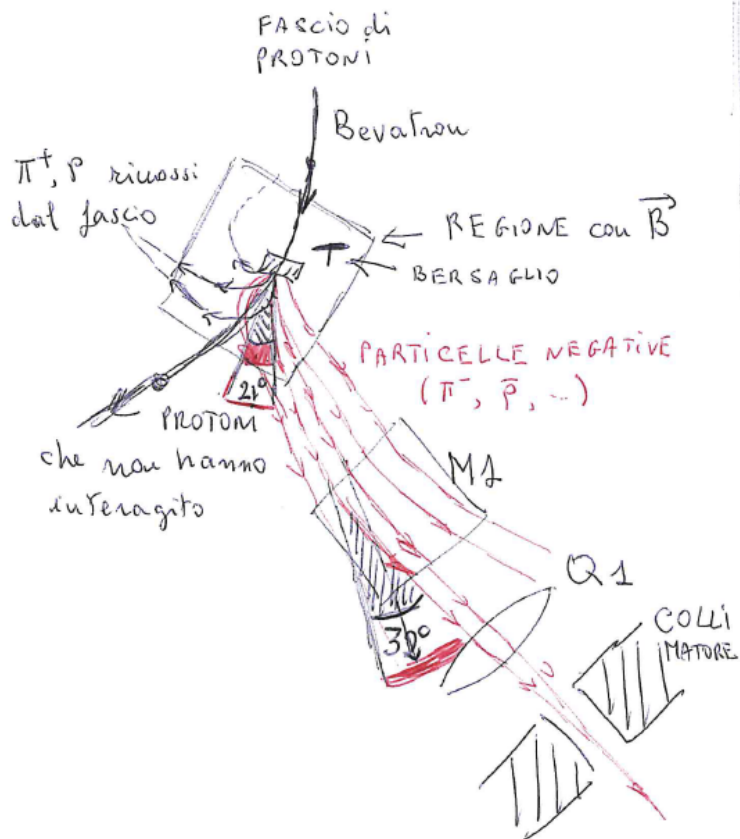 FASCIO di
PROTONI
Bevatron
π⁺, P rimossi
dal fascio
REGIONE con B⃗
T
BERSAGLIO
PARTICELLE NEGATIVE
(π⁻, p̄, ...)
21°
PROTONI
che non hanno
interagito
M1
Q1
30°
COLLI
MATORE